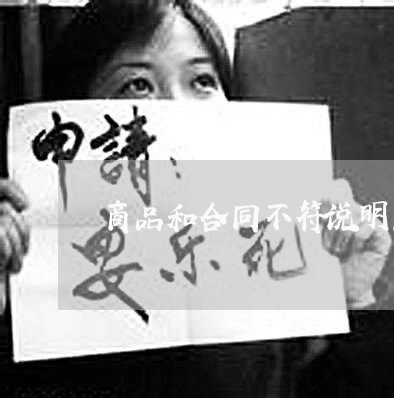 申請：
商品和合同不符说明
安乐死